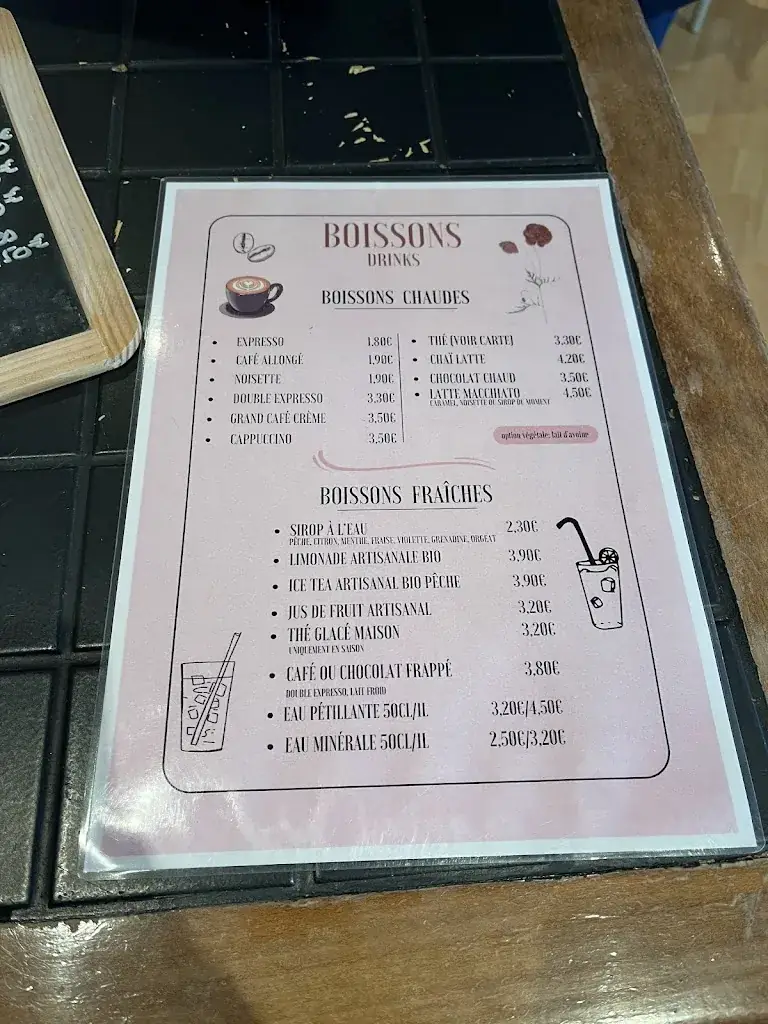 BOISSONS
DRINKS
BOISSONS CHAUDES
• EXPRESSO 1,80€
• CAFÉ ALLONGÉ 1,90€
• NOISETTE 1,90€
• DOUBLE EXPRESSO 3,30€
• GRAND CAFÉ CRÈME 3,50€
• CAPPUCCINO 3,50€
• THÉ (VOIR CARTE) 3,30€
• CHAÏ LATTE 4,20€
• CHOCOLAT CHAUD 3,50€
• LATTE MACCHIATO 4,50€
CARAMEL, NOISETTE OU SIROP DU MOMENT
option végétale: lait d'avoine
BOISSONS FRAÎCHES
• SIROP À L'EAU 2,30€
PÊCHE, CITRON, MENTHE, FRAISE, VIOLETTE, GRENADINE, ORGEAT
• LIMONADE ARTISANALE BIO 3,90€
• ICE TEA ARTISANAL BIO PÊCHE 3,90€
• JUS DE FRUIT ARTISANAL 3,20€
• THÉ GLACÉ MAISON 3,20€
UNIQUEMENT EN SAISON
• CAFÉ OU CHOCOLAT FRAPPÉ 3,80€
DOUBLE EXPRESSO, LAIT FROID
• EAU PÉTILLANTE 50CL/1L 3,20€/4,50€
• EAU MINÉRALE 50CL/1L 2,50€/3,20€